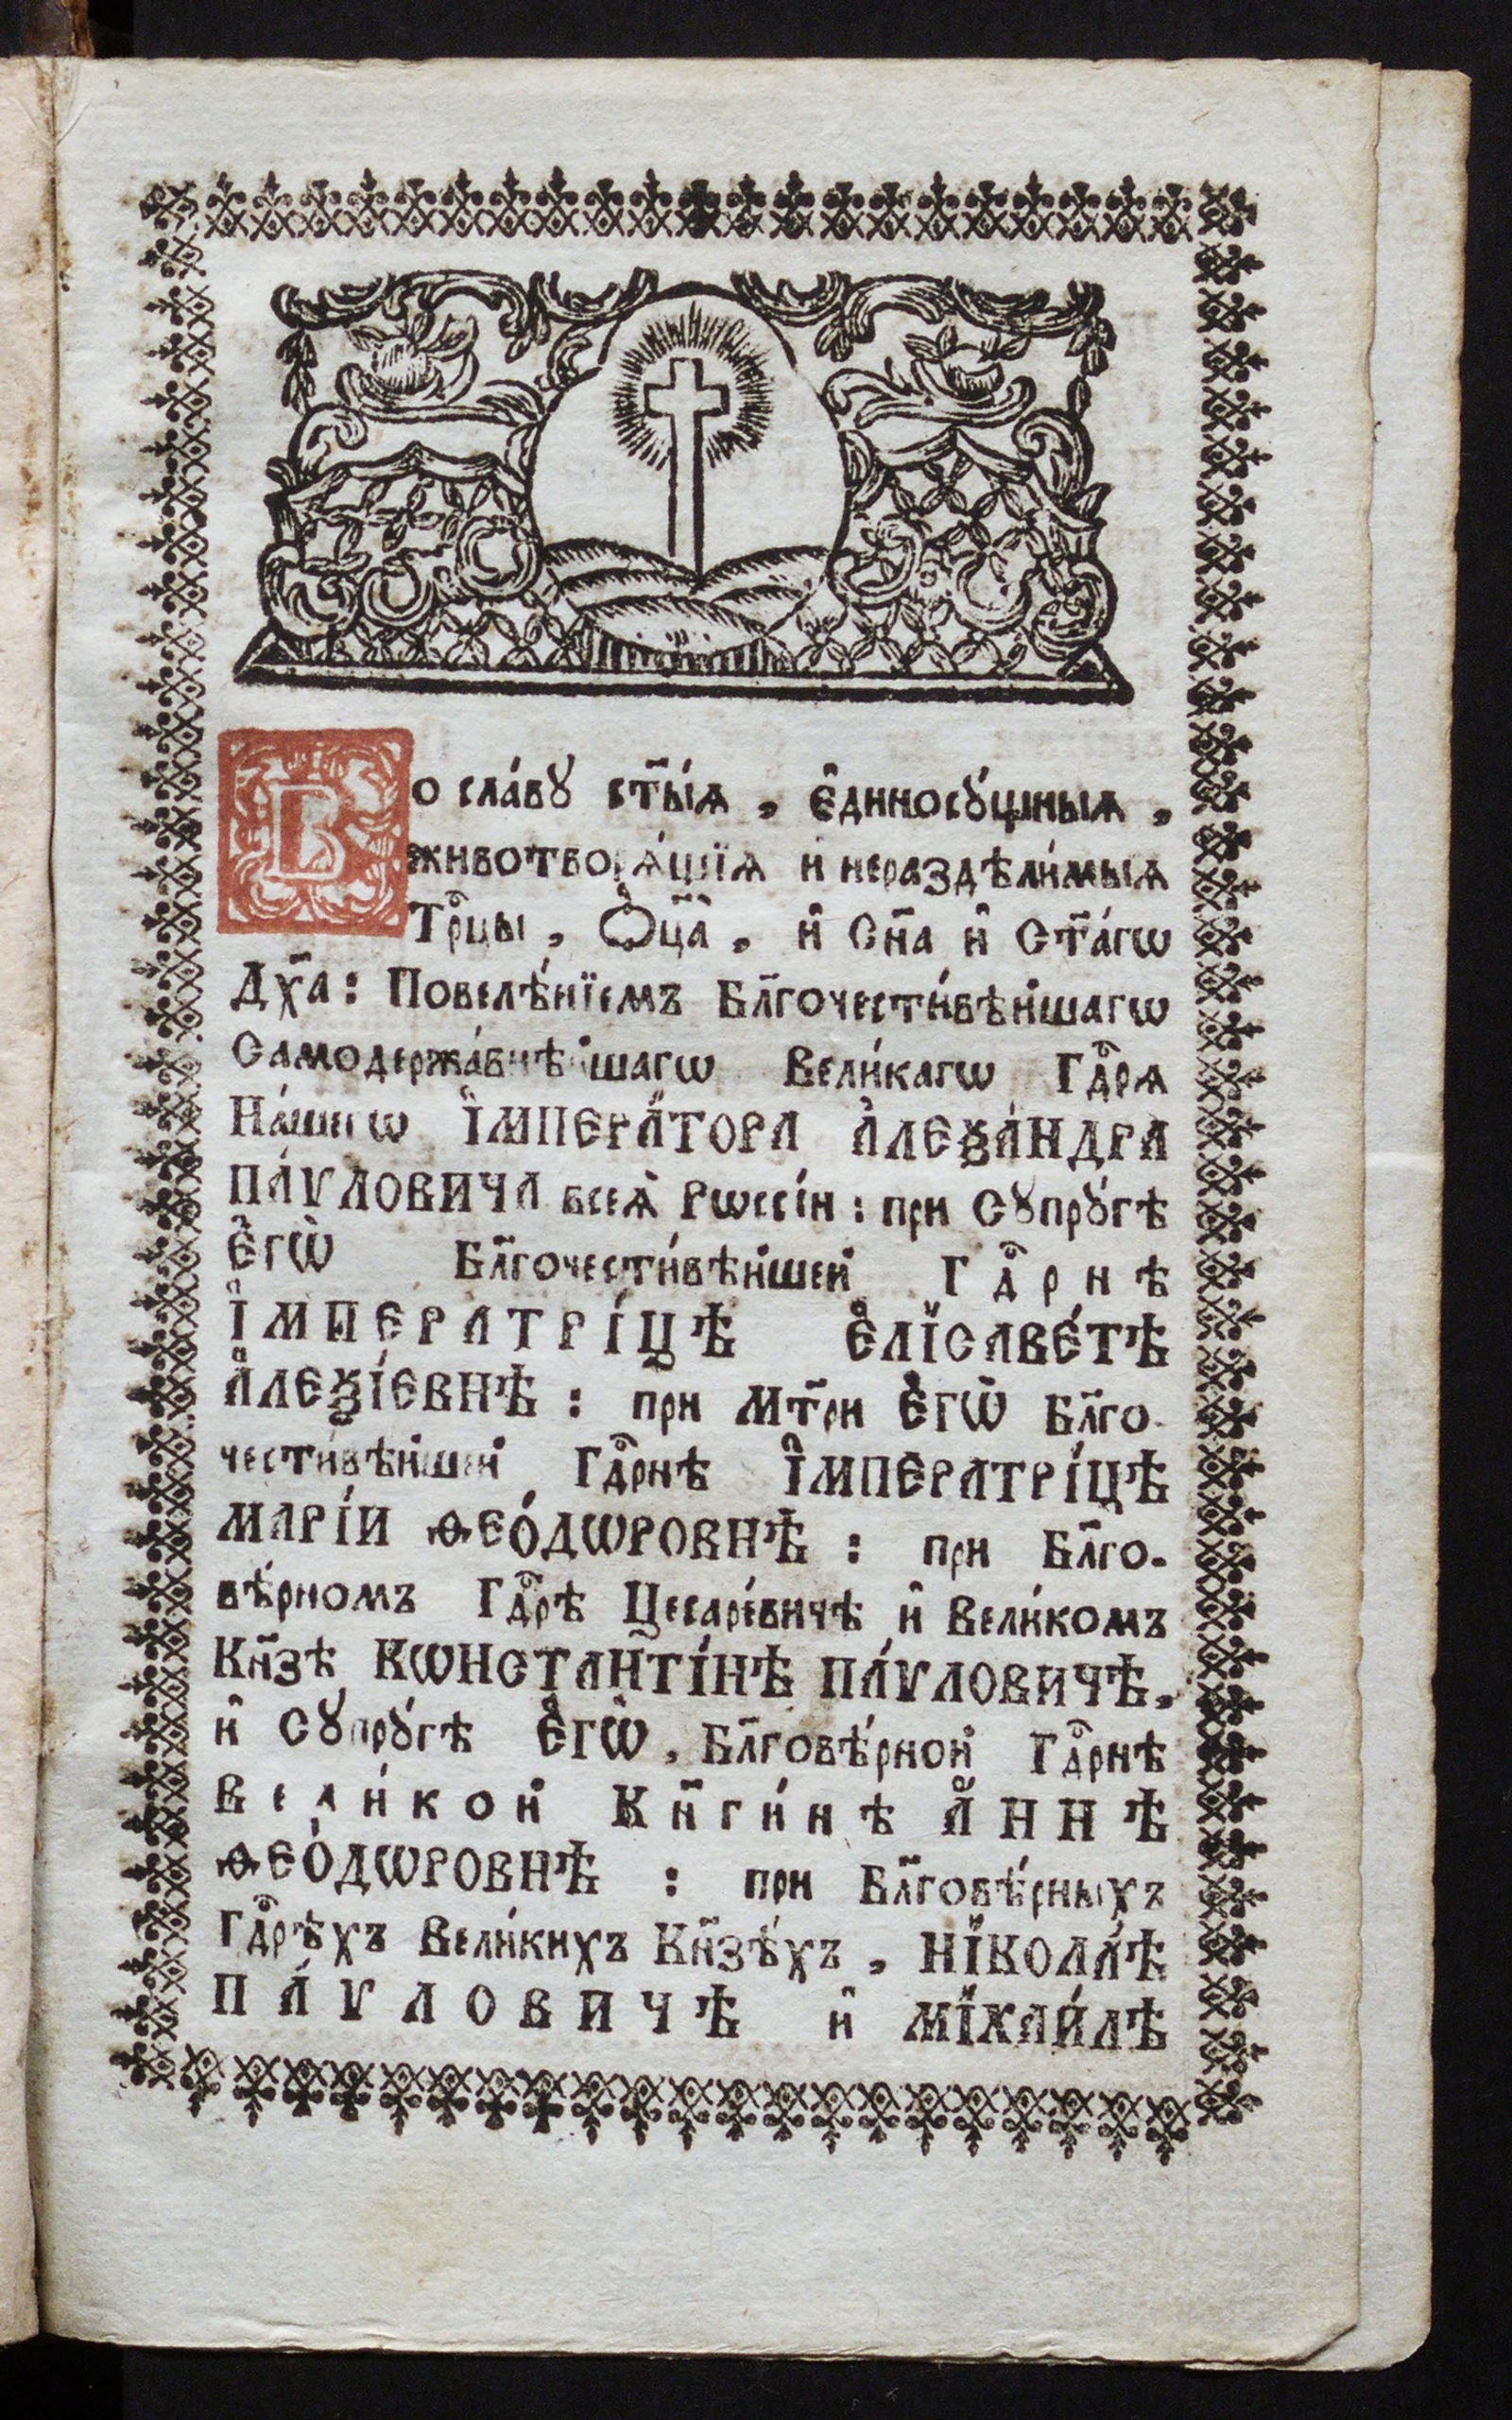 Во сла́вꙋ ст҃ы́ѧ , є҆диносꙋ́щныѧ ,
животворѧ́щїѧ и҆ нераздѣли́мыѧ
Трⷪ҇цы , Ѻ҆ц҃а̀ , и҆ Сн҃а и҆ Ст҃а́гѡ
Дх҃а : Повелѣ́нїемъ Бл҃гочести́вѣйшагѡ
Самодержа́внѣйшагѡ Вели́кагѡ Гдⷭ҇рѧ
На́шегѡ І҆МПЕРА́ТОРА А҆ЛЕѮА́НДРА
ПА́ѴЛОВИЧА всеѧ̀ Рѡссі́и : при Сꙋпрꙋ́гѣ
Є҆гѡ̀ Бл҃гочести́вѣйшей Гдⷭ҇рнѣ
І҆МПЕРАТРІ́ЦѢ Є҆ЛІСАВЕ́ТѢ
А҆ЛЕѮІ́ЕВНѢ : при Мт҃ри Є҆гѡ̀ Бл҃го-
чести́вѣйшей Гдⷭ҇рнѣ І҆МПЕРАТРІ́ЦѢ
МАРІ́И ѲЕО́ДѠРОВНѢ : при Бл҃го-
вѣ́рномъ Гдⷭ҇рѣ Цесаре́вичѣ и҆ Вели́комъ
Кн҃зѣ КѠНСТАНТІ́НѢ ПА́ѴЛОВИЧѢ,
и҆ Сꙋпрꙋ́гѣ Є҆гѡ̀ , Бл҃говѣ́рной Гдⷭ҇рнѣ
Вели́кой Кн҃ги́нѣ А҆́ННѢ
ѲЕО́ДѠРОВНѢ : при Бл҃говѣ́рныхъ
Гдⷭ҇рѣхъ Вели́кихъ Кн҃зѣ́хъ , НІКОЛА́Ѣ
ПА́ѴЛОВИЧѢ и҆ МІХАИ́ЛѢ